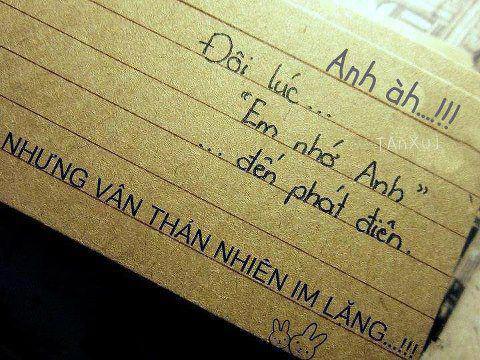 Anh àh....!!!
Đôi lúc...
"Em nhớ Anh"
[TAnXu]
... đến phát điên.
NHƯNG VẪN THẢN NHIÊN IM LẶNG...!!!